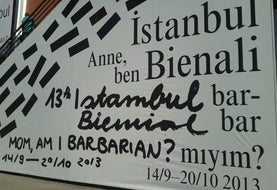 İstanbul
Anne, Bienali
ben
13th Istanbul bar-
Biennial bar
MOM, AM I BARBARIAN? mıyım?
14/9—20/10 2013 14/9–20/10 2013